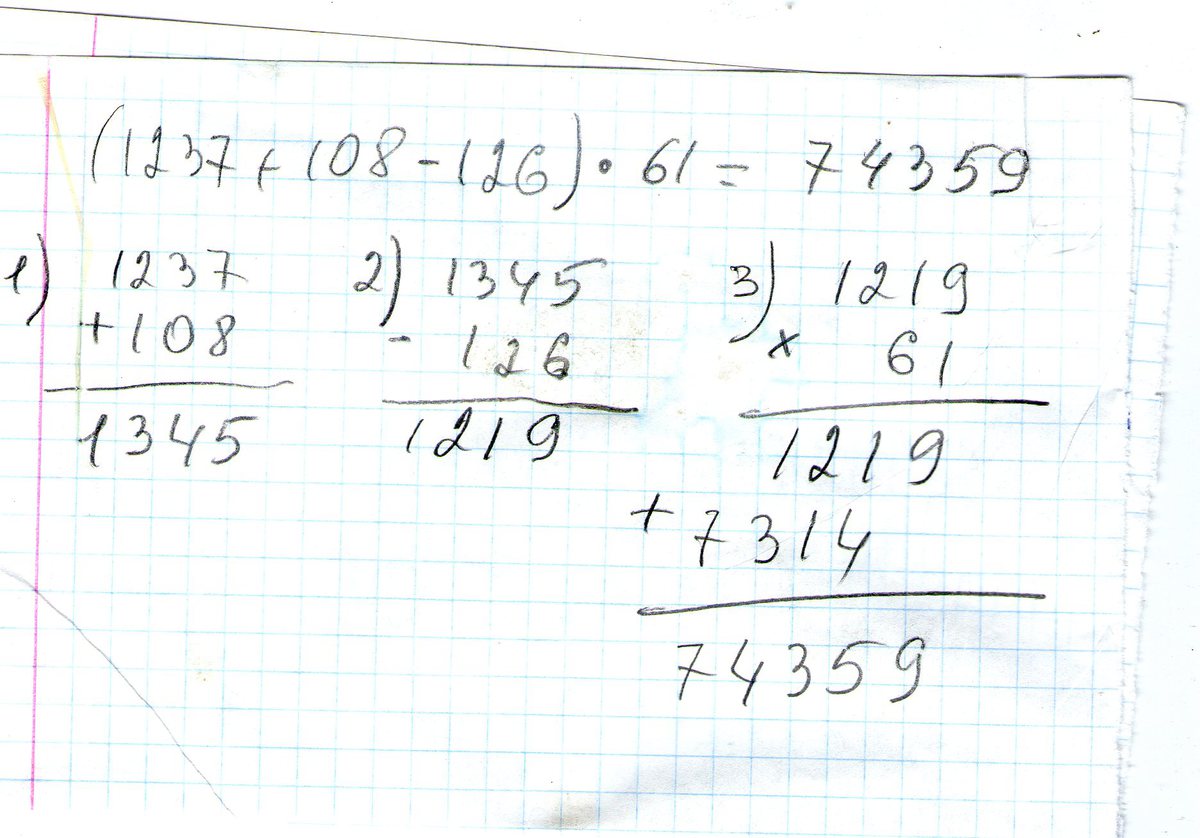 (1237+108-126)·61=74359
1) 1237
+108
1345
2) 1345
- 126
1219
3) 1219
× 61
1219
+ 7314
74359